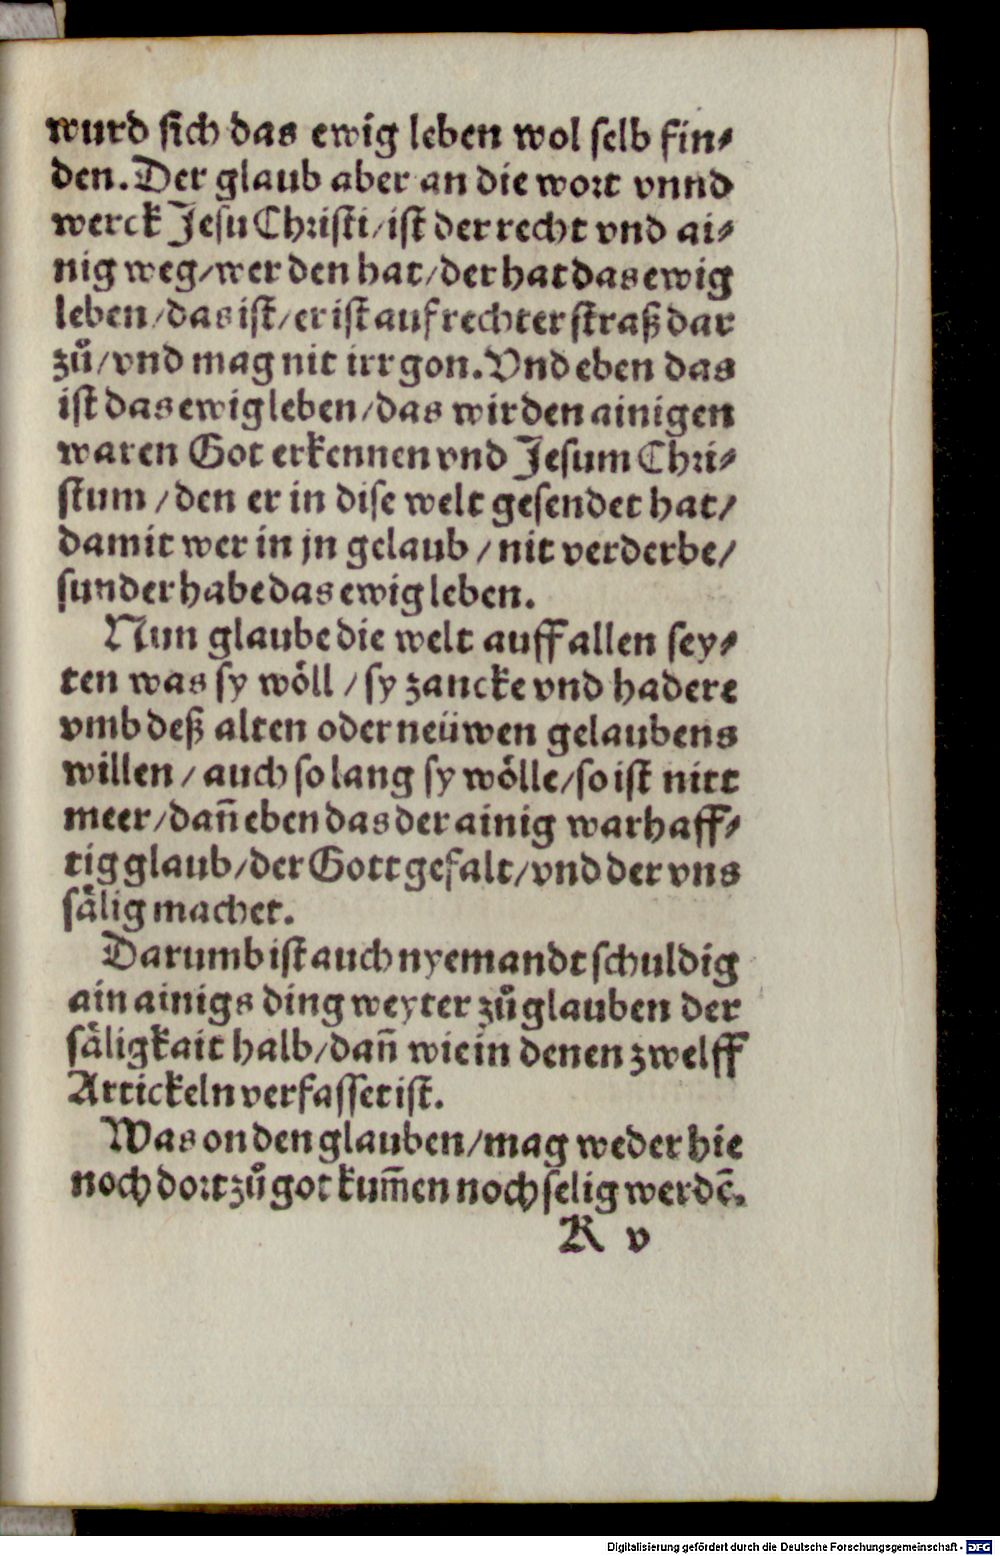 wurd sich das ewig leben wol selb fin⸗
den. Der glaub aber an die wort vnnd
werck Jesu Christi / ist der recht vnd ai⸗
nig weg / wer den hat / der hat das ewig
leben / das ist / er ist auf rechter straß dar
zů / vnd mag nit irr gon. Vnd eben das
ist das ewig leben / das wir den ainigen
waren Got erkennen vnd Jesum Chri⸗
stum / den er in dise welt gesendet hat /
damit wer in jn gelaub / nit verderbe /
sunder habe das ewig leben.
Nun glaube die welt auff allen sey⸗
ten was sy wöll / sy zancke vnd hadere
vmb deß alten oder neüwen gelaubens
willen / auch so lang sy wölle / so ist nitt
meer / dañ eben das der ainig warhaff⸗
tig glaub / der Gott gefalt / vnd der vns
sälig machet.
Darumb ist auch nyemandt schuldig
ain ainigs ding weyter zů glauben der
säligkait halb / dañ wie in denen zwelff
Artickeln verfasset ist.
Was on den glauben / mag weder hie
noch dort zů got kum̃en noch selig werdē.
K v
Digitalisierung gefördert durch die Deutsche Forschungsgemeinschaft - DFG